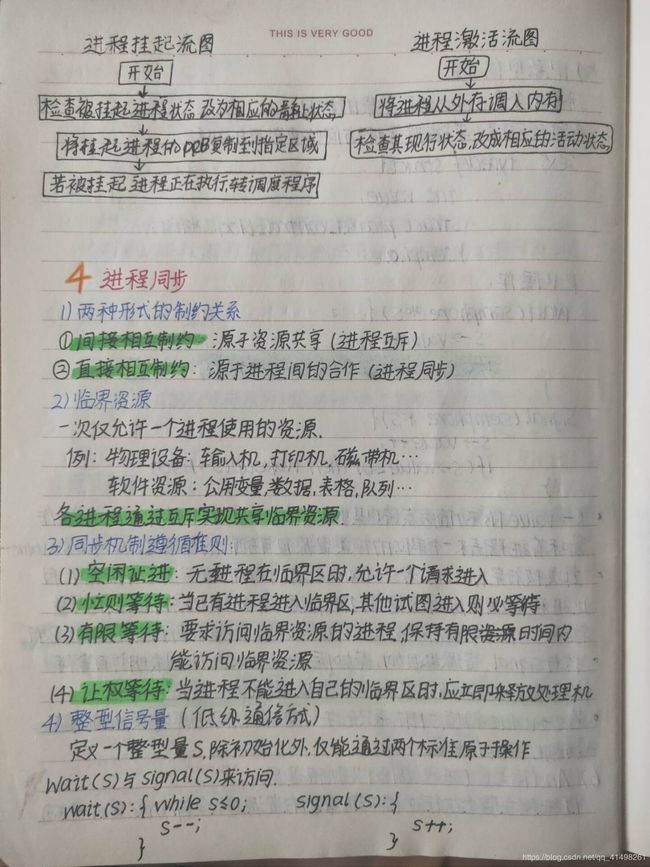 THIS IS VERY GOOD
进程挂起流图
开始
检查被挂起进程状态,改为相应的静止状态
将挂起进程的PCB复制到指定区域
若被挂起进程正在执行,转调度程序
进程激活流图
开始
将进程从外存调入内存
检查其现行状态,改成相应的活动状态
4 进程同步
1) 两种形式的制约关系
①间接相互制约 源于资源共享 (进程互斥)
②直接相互制约: 源于进程间的合作 (进程同步)
2) 临界资源
一次仅允许一个进程使用的资源.
例: 物理设备: 输入机, 打印机, 磁带机…
软件资源: 公用变量,数据,表格,队列…
各进程通过互斥实现共享临界资源
3) 同步机制遵循准则:
(1) 空闲让进: 无进程在临界区时,允许一个请求进入
(2) 忙则等待: 当已有进程进入临界区,其他试图进入则必等待
(3) 有限等待: 要求访问临界资源的进程,保持有限时间内
能访问临界资源
(4) 让权等待: 当进程不能进入自己的临界区时,应立即释放处理机
4) 整型信号量 (低级通信方式)
定义一个整型量S,除初始化外,仅能通过两个标准原子操作
wait(S)与signal(S)来访问.
wait(S): { while s≤0; signal(S): {
s--; s++;
} }
https://blog.csdn.net/qq_41498261